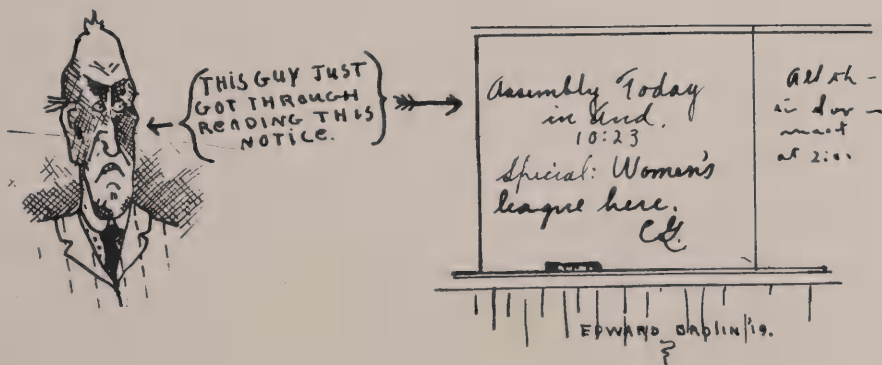 THIS GUY JUST
GOT THROUGH
READING THIS
NOTICE.
Assembly Today
in Aud.
10:23
Special: Women's
league here.
CG.
All
in
must
at 2:
EDWARD '19.